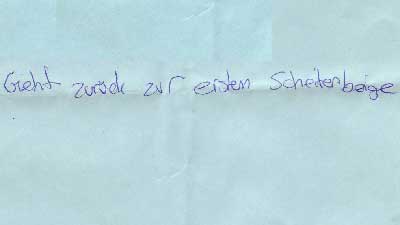 Geht zurück zur ersten Scheitenbeige